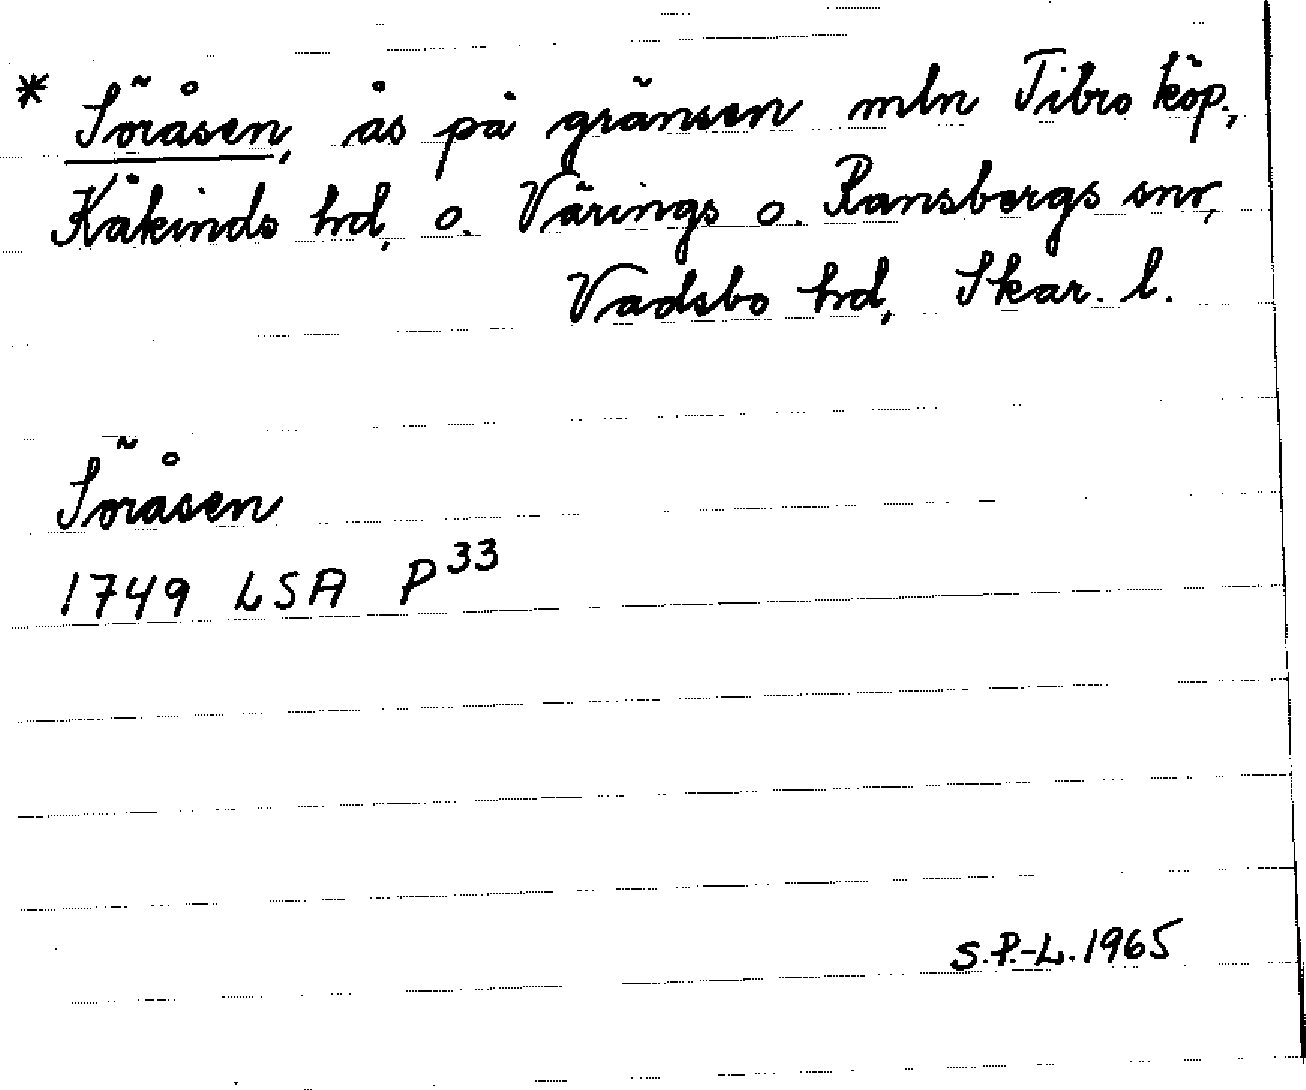 * Söråsen, ås på gränsen mln Tibro köp.,
Kåkinds hd, o. Värings o. Ransbergs snr,
Vadsbo hd, Skar. l.
Söråsen
1749 LSA P 33
S.P.-L. 1965